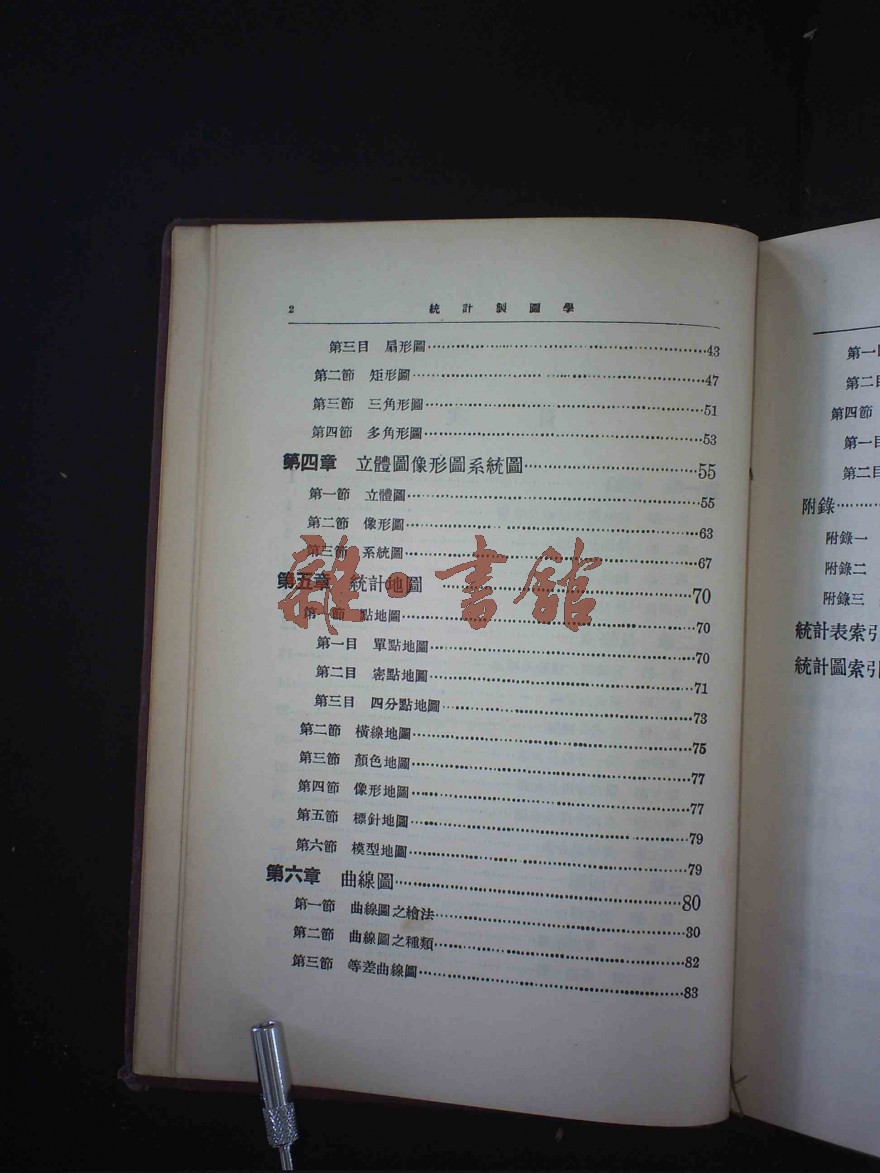 2 統計製圖學
第三目 扇形圖 43
第二節 矩形圖 47
第三節 三角形圖 51
第四節 多角形圖 53
第四章 立體圖像形圖系統圖 55
第一節 立體圖 55
第二節 像形圖 63
第三節 系統圖 67
第五章 統計地圖 70
第一節 點地圖 70
第一目 單點地圖 70
第二目 密點地圖 71
第三目 四分點地圖 73
第二節 橫線地圖 75
第三節 顏色地圖 77
第四節 像形地圖 77
第五節 標針地圖 79
第六節 模型地圖 79
第六章 曲線圖 80
第一節 曲線圖之繪法 30
第二節 曲線圖之種類 82
第三節 等差曲線圖 83
雜·書館
第一
第二
第四節
第一
第二目
附錄
附錄一
附錄二
附錄三
統計表索引
統計圖索引